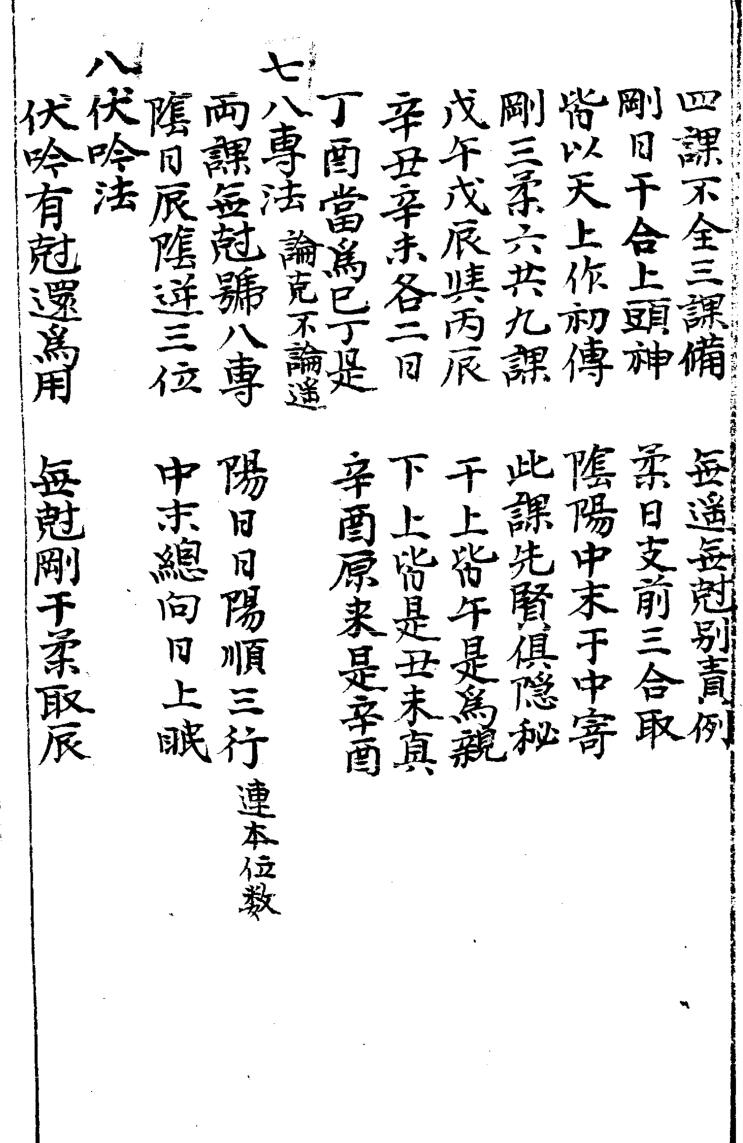 四課不全三課備　無遥無尅别責例
剛日干合上頭神　柔日支前三合取
皆以天上作初傳　隂陽中末干中寄
剛三柔六共九課　此課先賢俱隱秘
戊午戊辰與丙辰　干上皆午是爲親
辛丑辛未各二日　下上皆是丑未真
丁酉當爲巳丁是　辛酉原来是辛酉
七八專法　論克不論遥
両課無尅號八專　陽日日陽順三行　連本位数
隂日辰隂逆三位　中末總向日上眠
八伏吟法
伏吟有尅還爲用　無尅剛干柔取辰